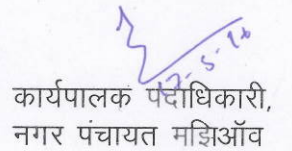 कार्यपालक पदाधिकारी,
नगर पंचायत मझिऑव